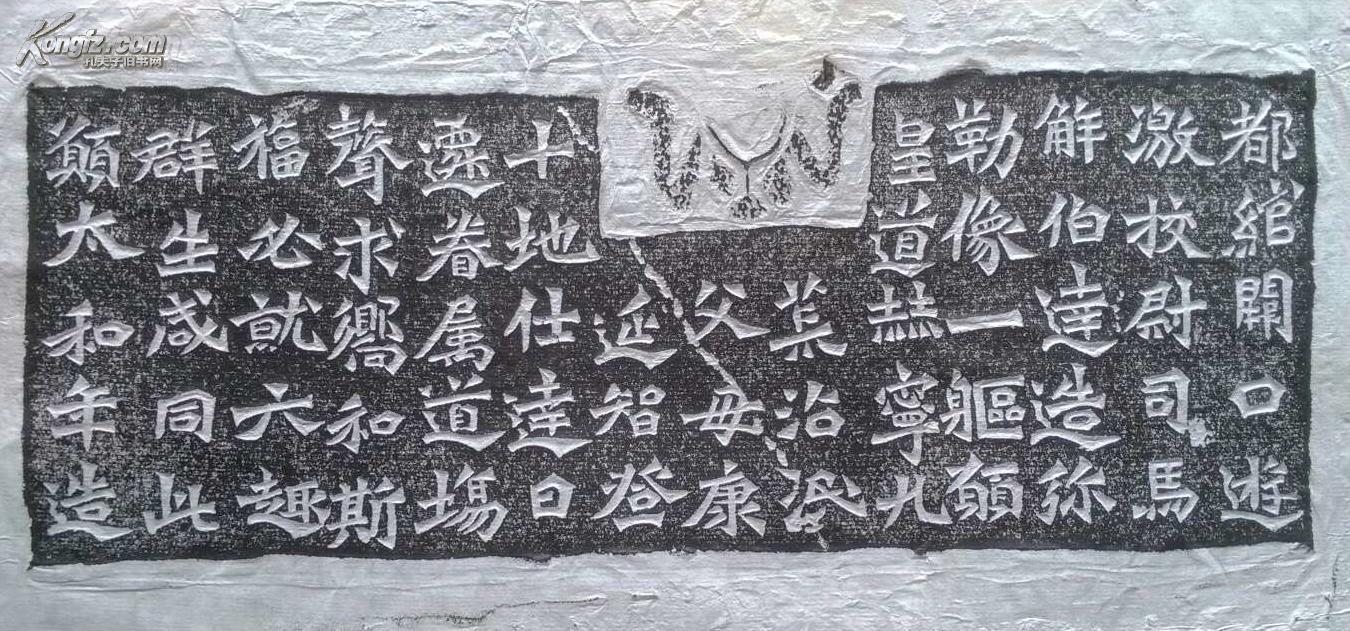 都綰闕口遊
激校尉司馬
解伯達造弥
勒像一軀願
皇道赫寧九
荒沾泯
父母康
延智登
十地仕達日
遷眷属道塲
聲求嚮和斯
福必就六趣
群生咸同此
願太和年造
Kongfz.com
孔夫子旧书网